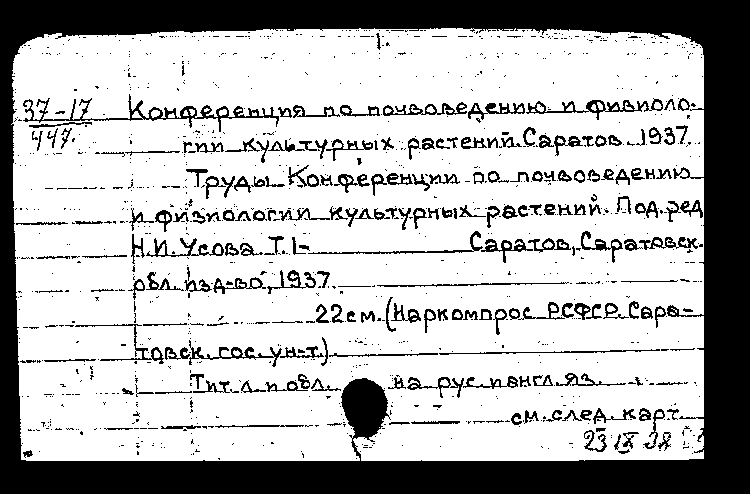 37-17
447.
Конференция по почвоведению и физиоло-
гии культурных растений. Саратов. 1937
Труды Конференции по почвоведению
и физиологии культурных растений. Под. ред
Н.И. Усова Т. 1-        Саратов, Саратовск.
обл. изд-во, 1937.
22см. (Наркомпрос РСФСР. Сара-
товск. гос. ун-т.).
Тит. л. и обл. на рус. и англ. яз.
см. след. карт.
23 IX 38